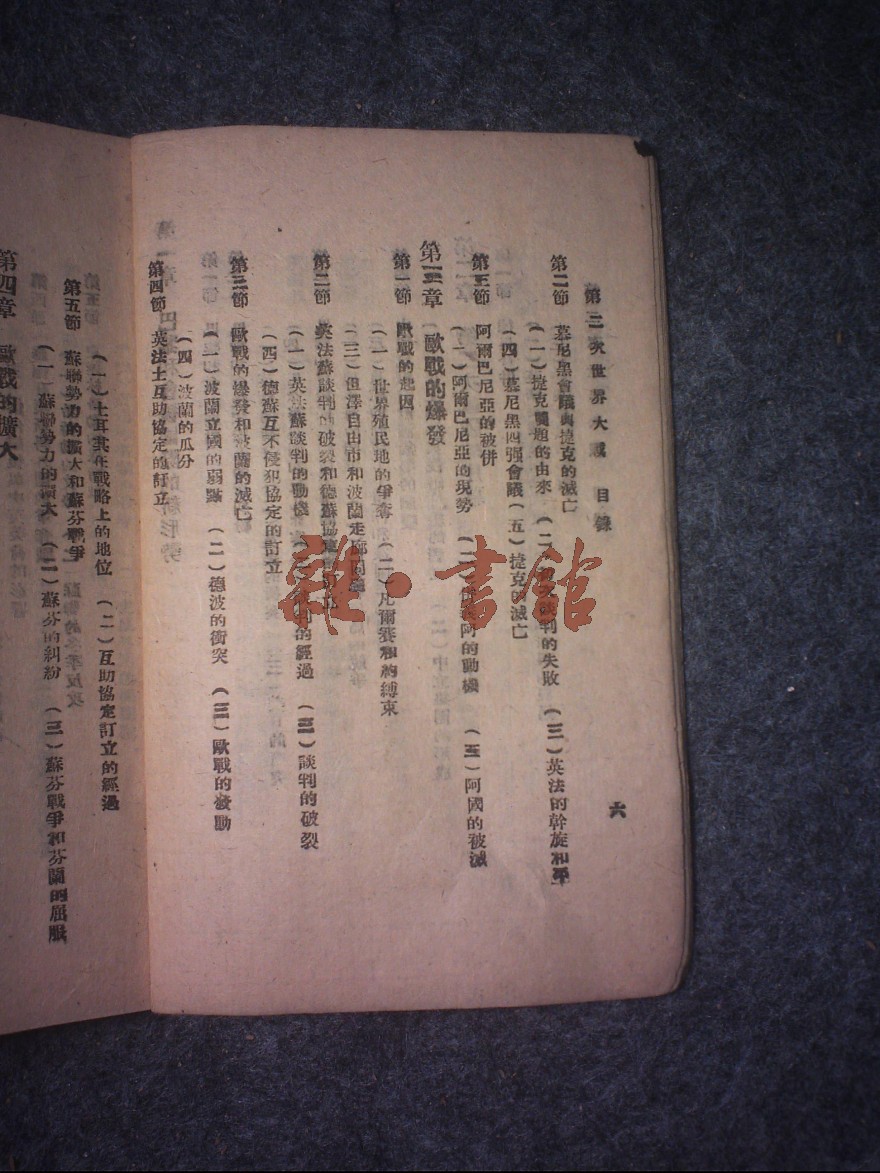 第二次世界大戰 目錄
六
第二節 慕尼黑會議與捷克的滅亡
(一)捷克問題的由來 (二) 談判的失敗 (三)英法的斡旋和平
(四)慕尼黑四强會議(五)捷克的滅亡
第三節 阿爾巴尼亞的被併
(一)阿爾巴尼亞的現勢 (二) 阿的動機 (三)阿國的被滅
第三章 歐戰的爆發
第一節 歐戰的起因
(一)世界殖民地的爭奪 (二)凡爾賽和約縛束
(三)但澤自由市和波蘭走廊問題
第二節 英法蘇談判的破裂和德蘇協定
(一)英法蘇談判的動機 (二)談判的經過 (三)談判的破裂
(四)德蘇互不侵犯協定的訂立
第三節 歐戰的爆發和波蘭的滅亡
(一)波蘭立國的弱點 (二)德波的衝突 (三)歐戰的發動
(四)波蘭的瓜分
第四節 英法土互助協定的訂立
(一)土耳其在戰略上的地位 (二)互助協定訂立的經過
第五節 蘇聯勢力的擴大和蘇芬戰爭
(一)蘇聯勢力的擴大 (二)蘇芬的糾紛 (三)蘇芬戰爭和芬蘭的屈服
第四章 歐戰的擴大
雜·書館